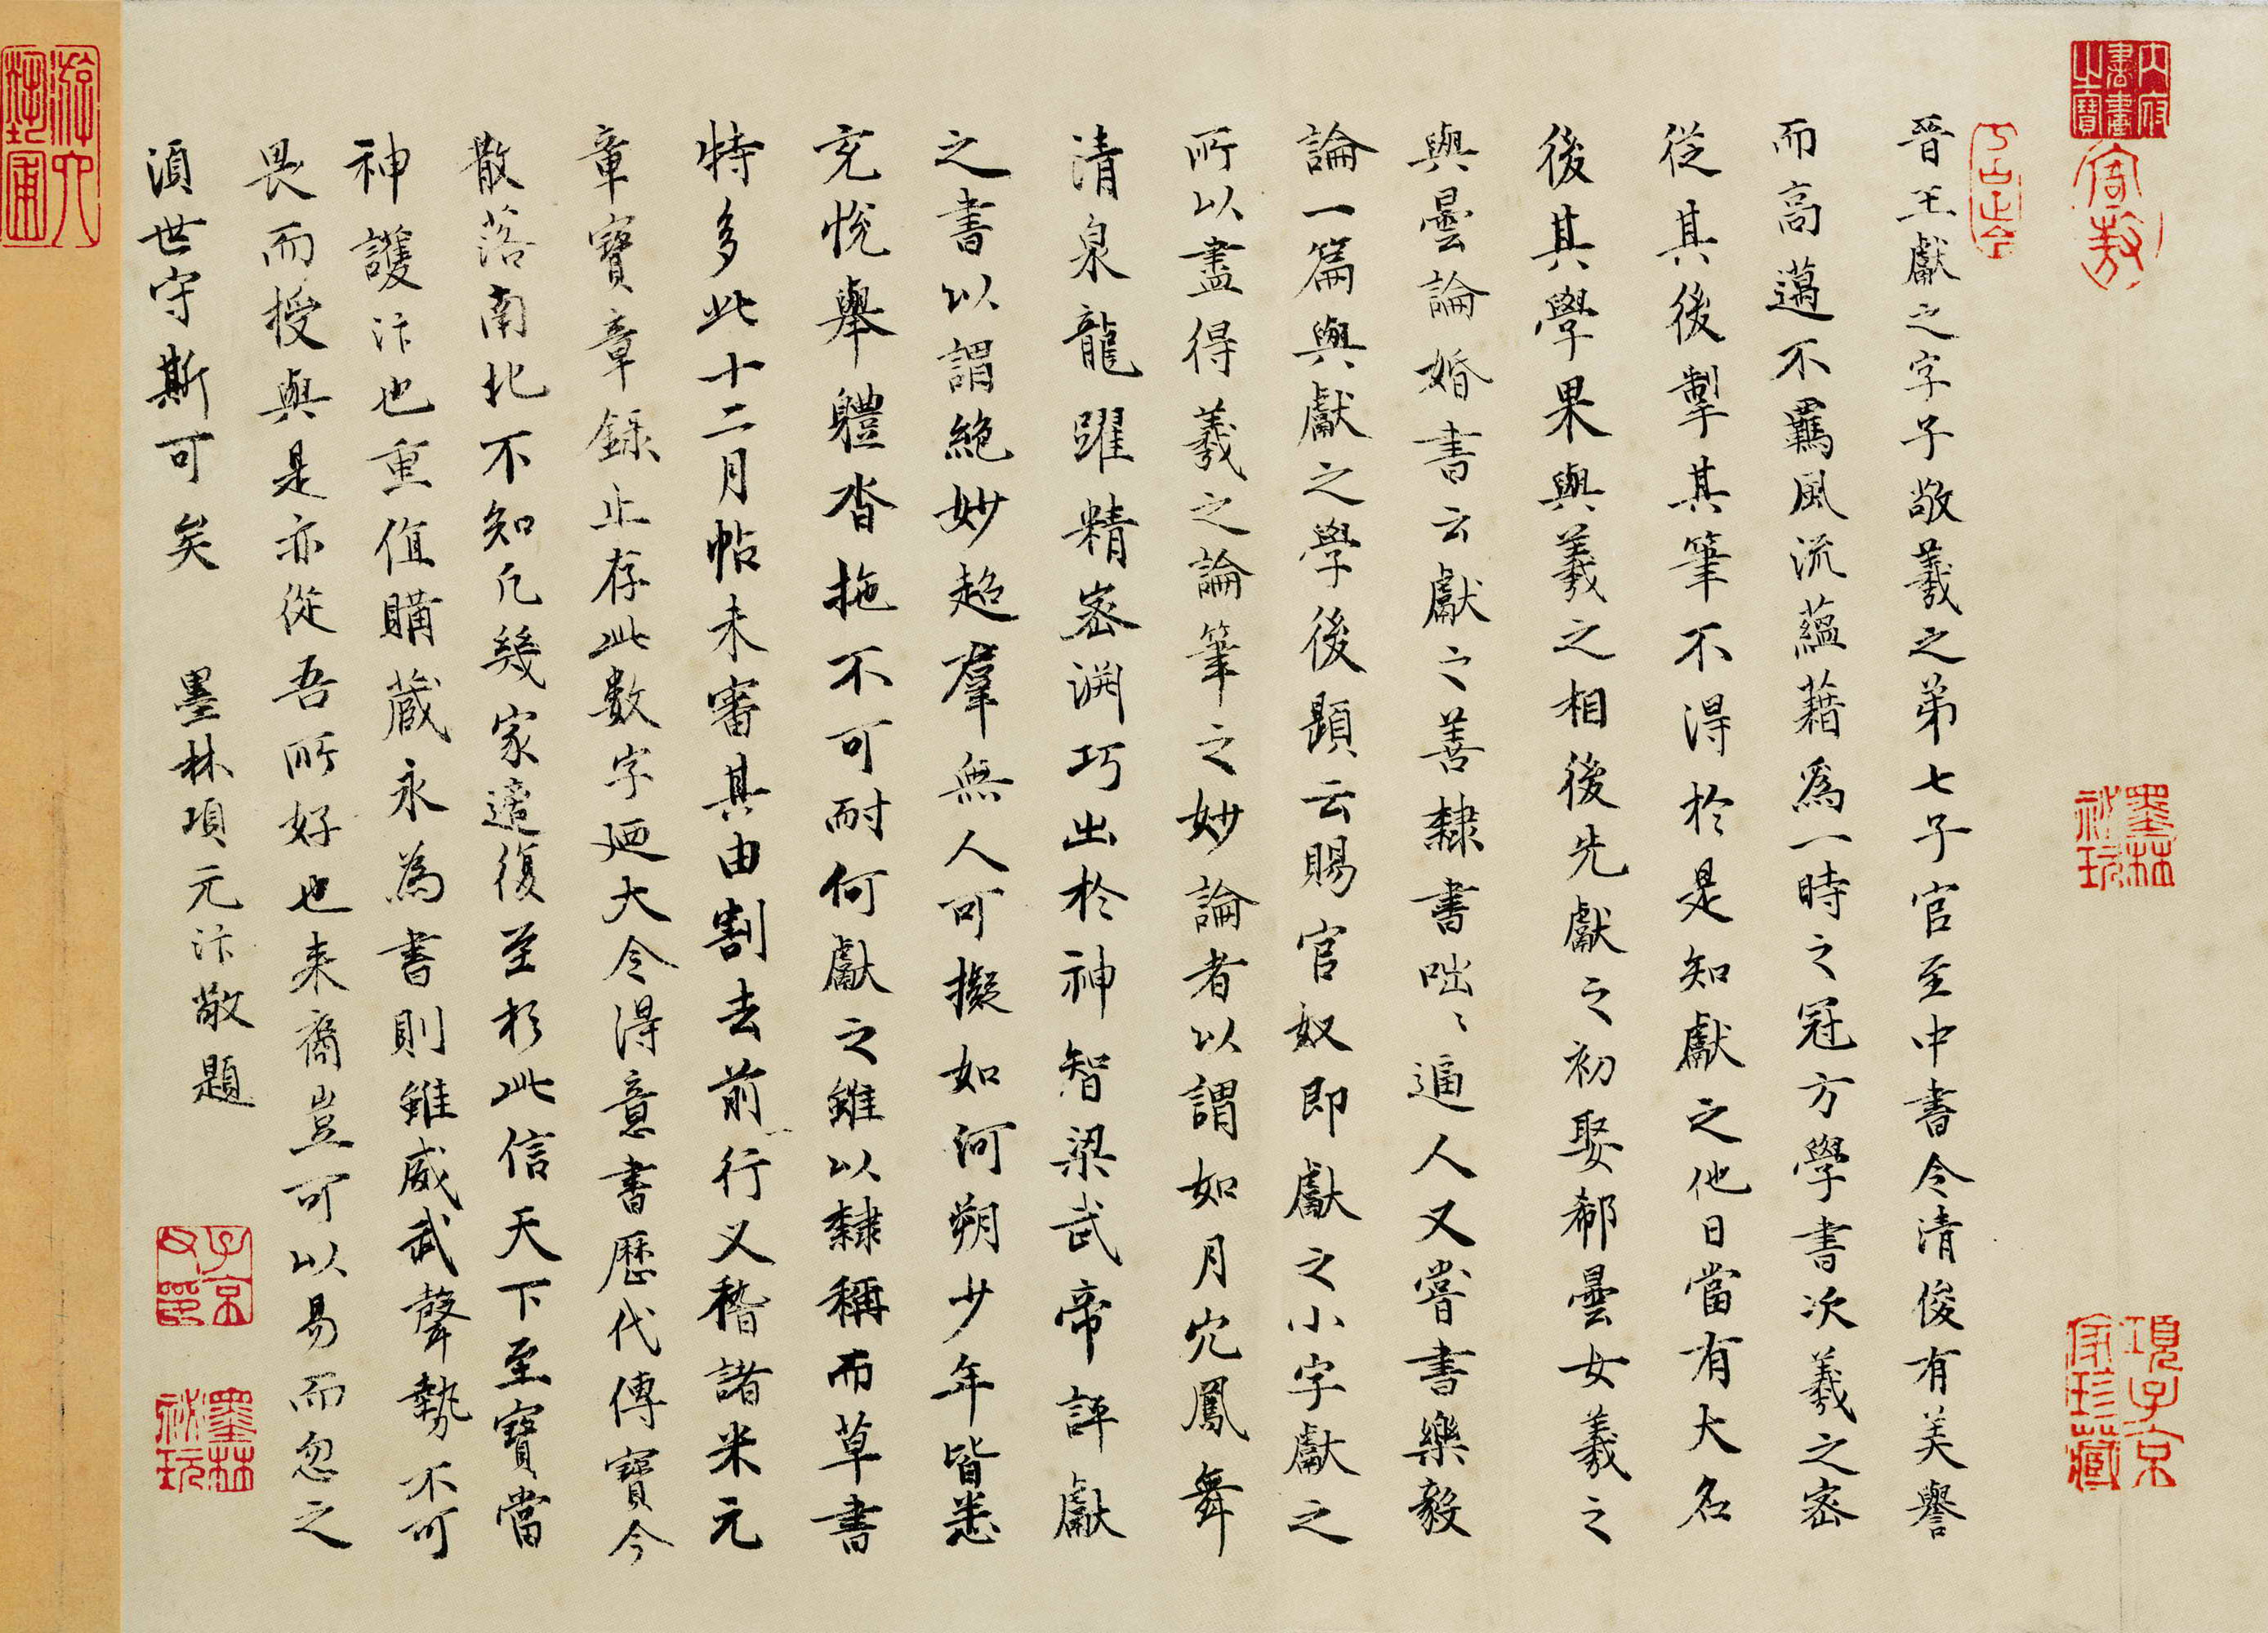 晉王獻之字子敬羲之弟七子官至中書令清俊有美譽
而高邁不羈風流蘊藉為一時之冠方學書次羲之密
從其後掣其筆不得於是知獻之他日當有大名
後其學果與羲之相後先獻之初娶郗曇女羲之
與曇論婚書云獻之善隸書咄咄逼人又嘗書樂毅
論一篇與獻之學後題云賜官奴即獻之小字獻之
所以盡得羲之論筆之妙論者以謂如月穴鳳舞
清泉龍躍精密淵巧出於神智梁武帝評獻
之書以謂絕妙超羣無人可擬如河朔少年皆悉
充悅舉體沓拖不可耐何獻之雖以隸稱而草書
特多此十二月帖未審其由割去前行又稽諸米元
章寶章錄止存此數字廼大令得意書歷代傳寶今
散落南北不知凡幾家遠復至於此信天下至寶當
神護汴也重值購藏永為書則雖威武聲勢不可
畏而授與是亦從吾所好也來裔豈可以易而忽之
須世守斯可矣 墨林項元汴敬題
內府書畫之寶
寄敖
墨林祕玩
項子京家珍藏
子京父印
墨林祕玩